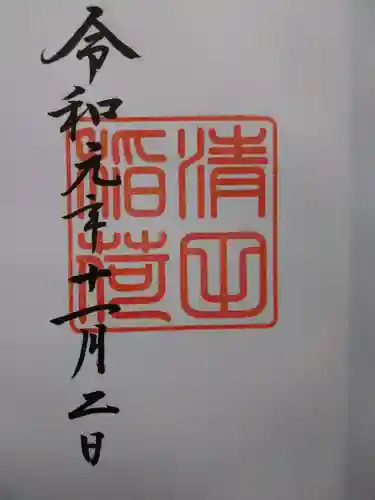 令和元年十一月二日
清田
稲荷